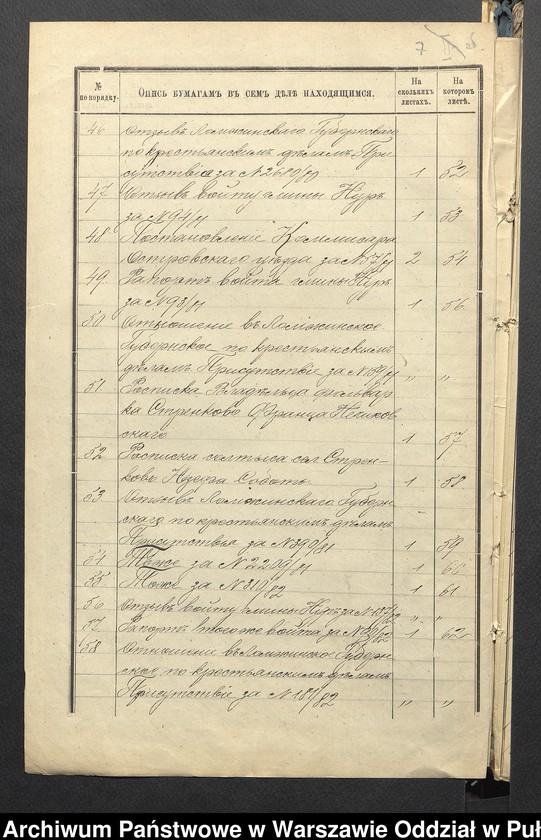 7
№ по порядку.
Опись бумагамъ въ семъ дѣлѣ находящимся.
На сколькихъ листахъ.
На которомъ листѣ.
46 Отзывъ Ломжинскаго Губернскаго
по крестьянскимъ дѣламъ При
сутствія за № 2619/81 1 52
47 Отзывъ войту гмины Нуръ
за № 94/81 1 53
48 Постановленіе Коммисара
Островскаго уѣзда за № 57/81 2 54
49. Рапортъ войта гмины Нуръ
за № 93/81 1 56
50 Отношеніе въ Ломжинское
Губернское по крестьянскимъ
дѣламъ Присутствіе за № 189/81 „ „
51 Росписка Владѣльца фольвар
ка Стренково Франца
скаго 1 57
52 Росписка солтыса сел. Стрен-
ково Іузефа 1 58
53 Отзывъ Ломжинскаго Губерн
скаго по крестьянскимъ дѣламъ
Присутствія за № 399/81 1 59
54 Тоже за № 2209/81 1 60
55 Тоже за № 310/82 1 61
56 Отзывъ войту гмины Нуръ за № 107/82 „ „
57 Рапортъ того же войта за № 1 62
58 Отношеніе въ Ломжинское Губерн
ское по крестьянскимъ дѣламъ
Присутствіе за № 181/82 „ „
Archiwum Państwowe w Warszawie Oddział w Puł